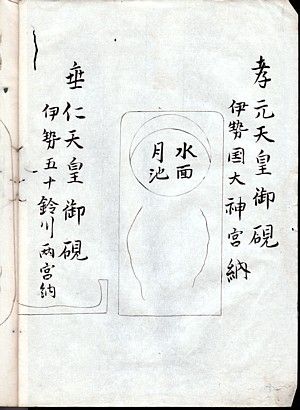 孝元天皇御硯
伊勢国大神宮納
水面
月池
垂仁天皇御硯
伊勢五十鈴川両宮納